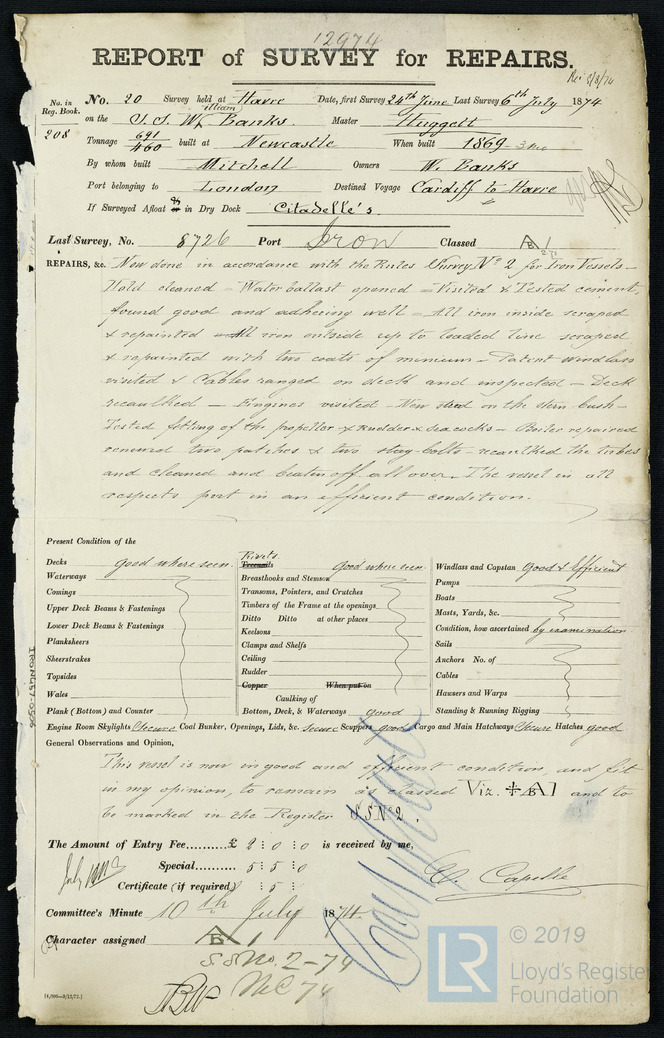 12974
REPORT of SURVEY for REPAIRS.
Rec 8/8/74
No. in Reg. Book. 208
No. 20 Survey held at Havre Date, first Survey 24th June Last Survey 6th July 1874
on the S.S. William Banks Master Huggett
Tonnage 691/460 built at Newcastle When built 1869
By whom built Mitchell Owners W. Banks
Port belonging to London Destined Voyage Cardiff to Havre
If Surveyed Afloat or in Dry Dock Citadelle's.
Last Survey, No. 8726 Port Iron Classed A 1
REPAIRS, &c. Now done in accordance with the Rules Survey No 2 for Iron Vessels—
Hold cleaned — Water ballast opened — Visited & Tested cement,
found good and adhering well — All iron inside scraped
& repainted — All iron outside up to loaded line scraped
& repainted with two coats of minium — Patent windlass
visited & Cables ranged on deck and inspected — Deck
recaulked — Engines visited — New on the stern bush —
Tested fitting of the propeller & Rudder & Seacocks — Boiler repaired
renewed two patches & two stay-bolts — recaulked the tubes
and cleaned and beaten off all over. The vessel in all
respects put in an efficient condition.
Present Condition of the
Decks good where seen
Waterways
Comings
Upper Deck Beams & Fastenings
Lower Deck Beams & Fastenings
Planksheers
Sheerstrakes
Topsides
Wales
Plank (Bottom) and Counter
Rivets
Treenails good where seen
Breasthooks and Stemson
Transoms, Pointers, and Crutches
Timbers of the Frame at the openings
Ditto Ditto at other places
Keelsons
Clamps and Shelfs
Ceiling
Rudder
Copper When put on
Caulking of
Bottom, Deck, & Waterways good
Windlass and Capstan Good & Efficient
Pumps
Boats
Masts, Yards, &c.
Condition, how ascertained by examination
Sails
Anchors No. of
Cables
Hawsers and Warps
Standing & Running Rigging
Engine Room Skylights Secure Coal Bunker, Openings, Lids, &c. Secure Scuppers good Cargo and Main Hatchways Secure Hatches good
General Observations and Opinion,
This vessel is now in good and efficient condition, and fit
in my opinion, to remain as classed Viz. A1 and to
be marked in the Register S S No 2.
The Amount of Entry Fee......£ 2 : 0 : 0 is received by me,
Special...... 5 : 5 : 0
Certificate (if required) : 5 :
Committee's Minute 10th July 1874
Character assigned A 1
S S No. 2-74
MC 74
IRON457-0506
© 2019
LR
Lloyd's Register
Foundation